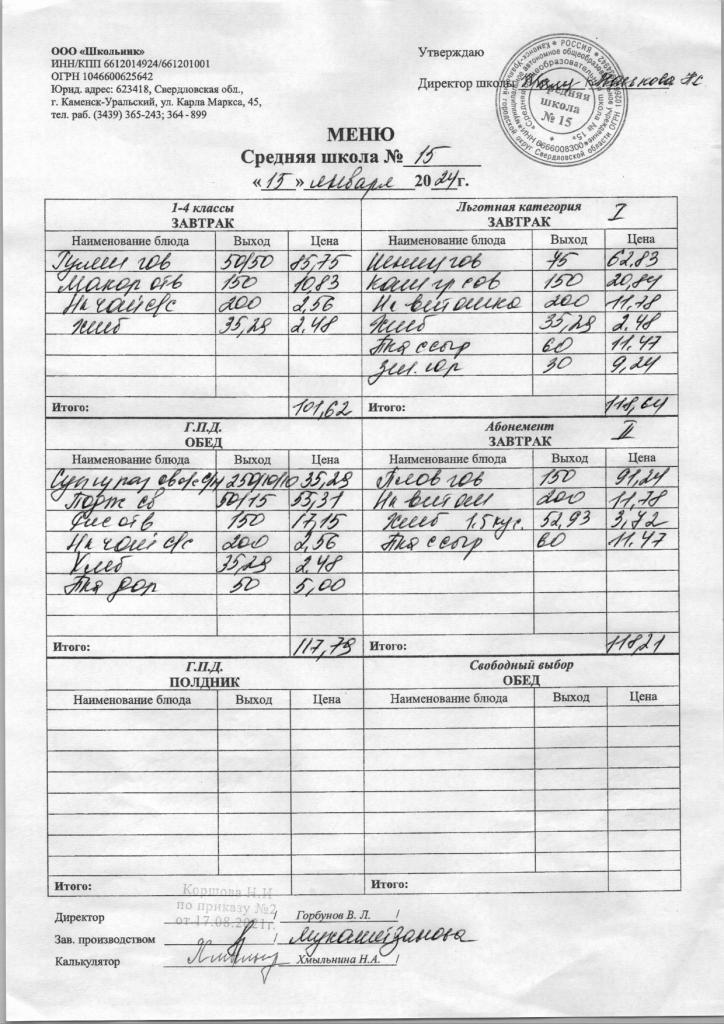 ООО «Школьник»
ИНН/КПП 6612014924/661201001
ОГРН 1046600625642
Юрид. адрес: 623418, Свердловская обл.,
г. Каменск-Уральский, ул. Карла Маркса, 45,
тел. раб. (3439) 365-243; 364 - 899
Утверждаю
Директор школы
Средняя
школа
№ 15
МЕНЮ
Средняя школа № 15
« 15 » января 2024г.
1-4 классы
ЗАВТРАК
Наименование блюда Выход Цена
Гуляш гов 50/50 85,75
Макар отв 150 10,83
Н-к чай с/с 200 2,56
Хлеб 35,29 2.48
Итого: 101,62
Льготная категория I
ЗАВТРАК
Наименование блюда Выход Цена
гов 45 62,83
150 20,84
Н-к витошка 200 11,78
Хлеб 35,29 2.48
60 11.47
30 9,24
Итого: 118,64
Г.П.Д.
ОБЕД
Наименование блюда Выход Цена
250/10/10 35,29
50/15 55,31
Рис отв 150 17,15
Н-к чай с/с 200 2,56
Хлеб 35,29 2.48
50 5,00
Итого: 117,79
Абонемент II
ЗАВТРАК
Наименование блюда Выход Цена
Плов гов 150 91,24
Н-к витош 200 11,78
Хлеб 1.5 кус. 52,93 3,72
60 11.47
Итого: 118,21
Г.П.Д.
ПОЛДНИК
Наименование блюда Выход Цена
Итого:
Свободный выбор
ОБЕД
Наименование блюда Выход Цена
Итого:
Коршова Н.И
по приказу №2
от 17.08.2021г.
Директор / Горбунов В. Л. /
Зав. производством /
Калькулятор / Хмыльнина Н.А. /